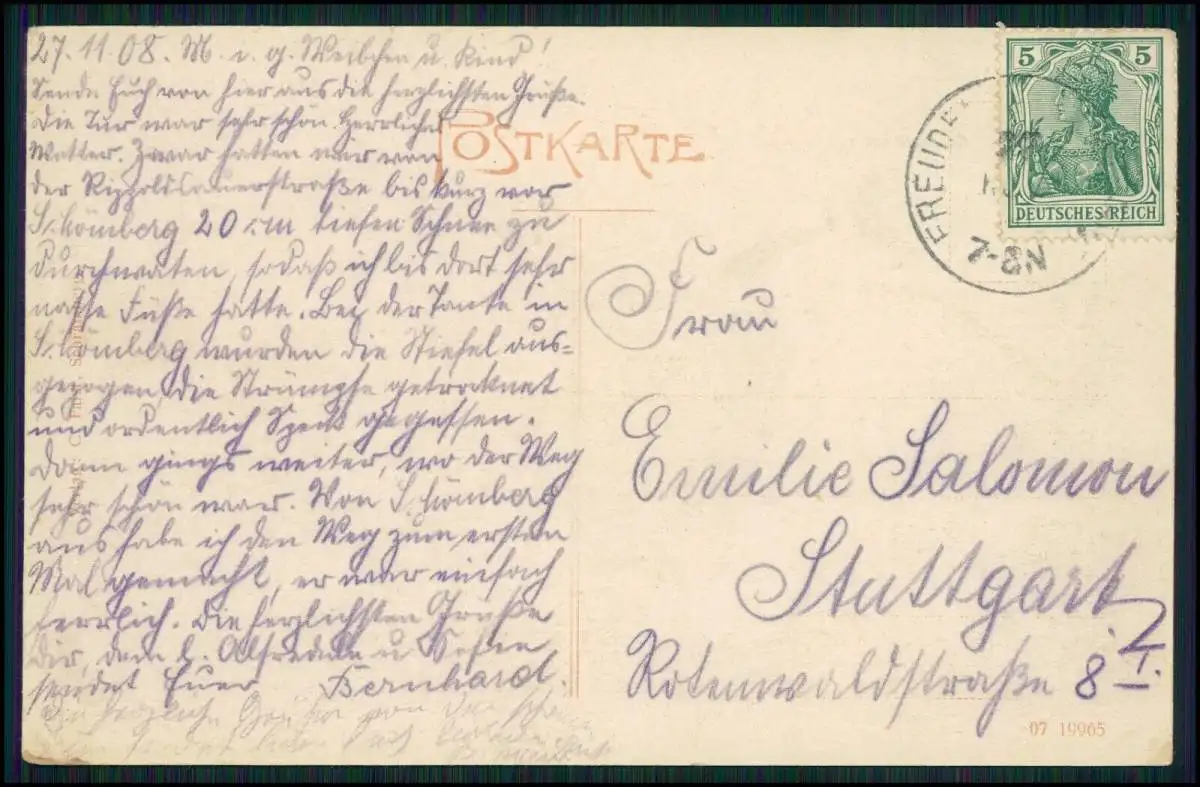 27.11.08. M. i. g. Weibchen u. Kind!
Sende Euch von hier aus die herzlichsten Grüße.
Die Tur war sehr schön. Herrliches
Wetter. Zwar hatten wir von
der Rippoldsauerstraße bis kurz vor
Schömberg 20 cm tiefen Schnee zu
durchwaten, sodaß ich bis dort sehr
nasse Füße hatte. Bei der Tante in
Schömberg wurden die Stiefel aus-
gezogen, die Strümpfe getrocknet
und ordentlich Speck gegessen.
Dann gings weiter, wo der Weg
sehr schön war. Von Schömberg
aus habe ich den Weg zum ersten
Mal gemacht, er war einfach
herrlich. Die herzlichsten Grüße
Dir, dem l. Alfredle u.
sendet Euer Bernhard.
herzliche Grüße von
POSTKARTE
5 5
DEUTSCHES REICH
FREUDE
7-8N
Frau
Emilie Salomon
Stuttgart
Rotenwaldstraße 8 I.
07 19965